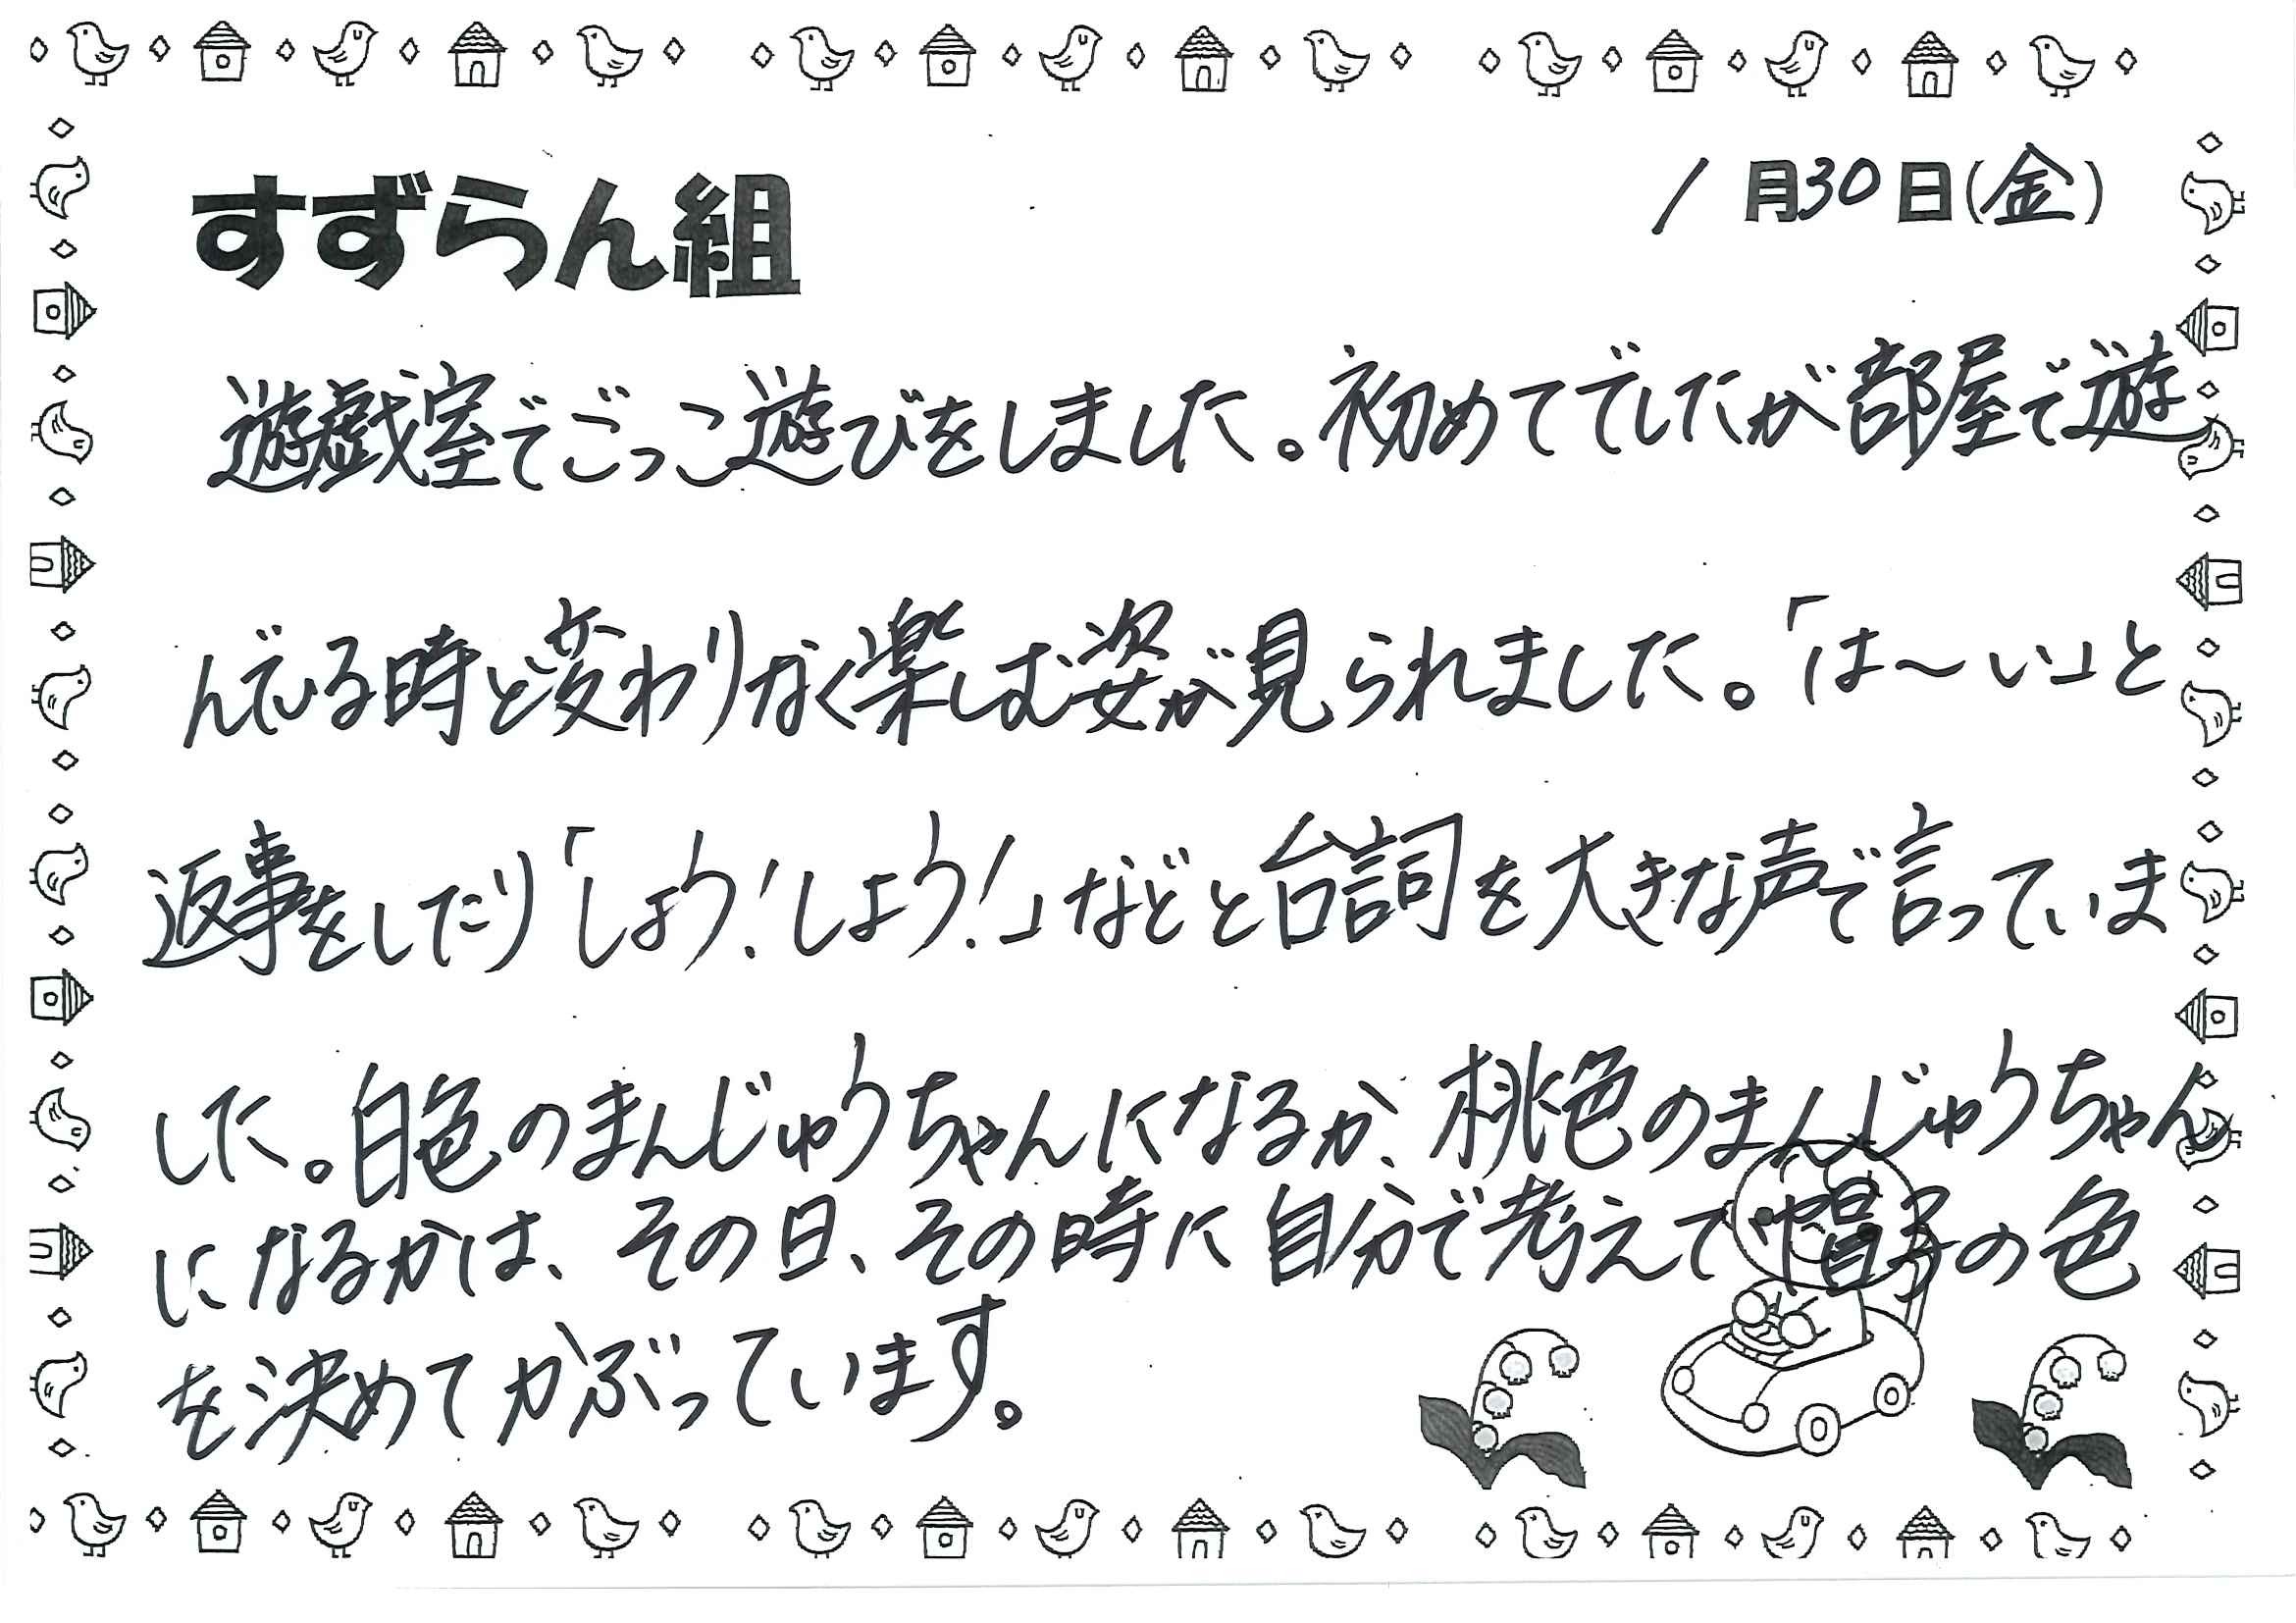 すずらん組
1月30日(金)
遊戯室でごっこ遊びをしました。初めてでしたが部屋で遊
んでいる時と変わりなく楽しむ姿が見られました。「は～い」と
返事をしたり「しよう!しよう!」などと台詞を大きな声で言っていま
した。白色のまんじゅうちゃんになるか、桃色のまんじゅうちゃん
になるかは、その日、その時に自分で考えて帽子の色
を決めてかぶっています。